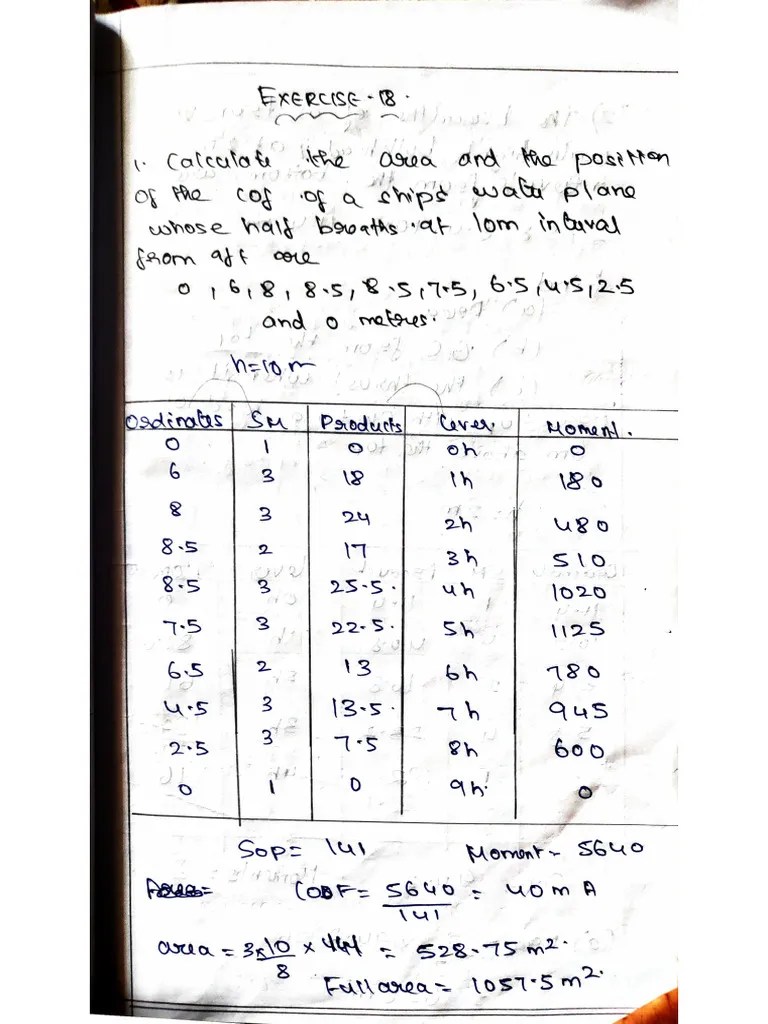 EXERCISE - 18.
1. Calculate the area and the position
of the cof of a ships water plane
whose half breaths at 10m interval
from aft are
0, 6, 8, 8.5, 8.5, 7.5, 6.5, 4.5, 2.5
and 0 metres.
h=10m
Ordinates SM Products Lever Moment.
0 1 0 0h 0
6 3 18 1h 180
8 3 24 2h 480
8.5 2 17 3h 510
8.5 3 25.5. 4h 1020
7.5 3 22.5. 5h 1125
6.5 2 13 6h 780
4.5 3 13.5. 7h 945
2.5 3 7.5 8h 600
0 1 0 9h. 0
SOP = 141 Moment = 5640
COF = 5640/141 = 40 m A
area = 3x10/8 x 141 = 528.75 m².
Full area = 1057.5 m².